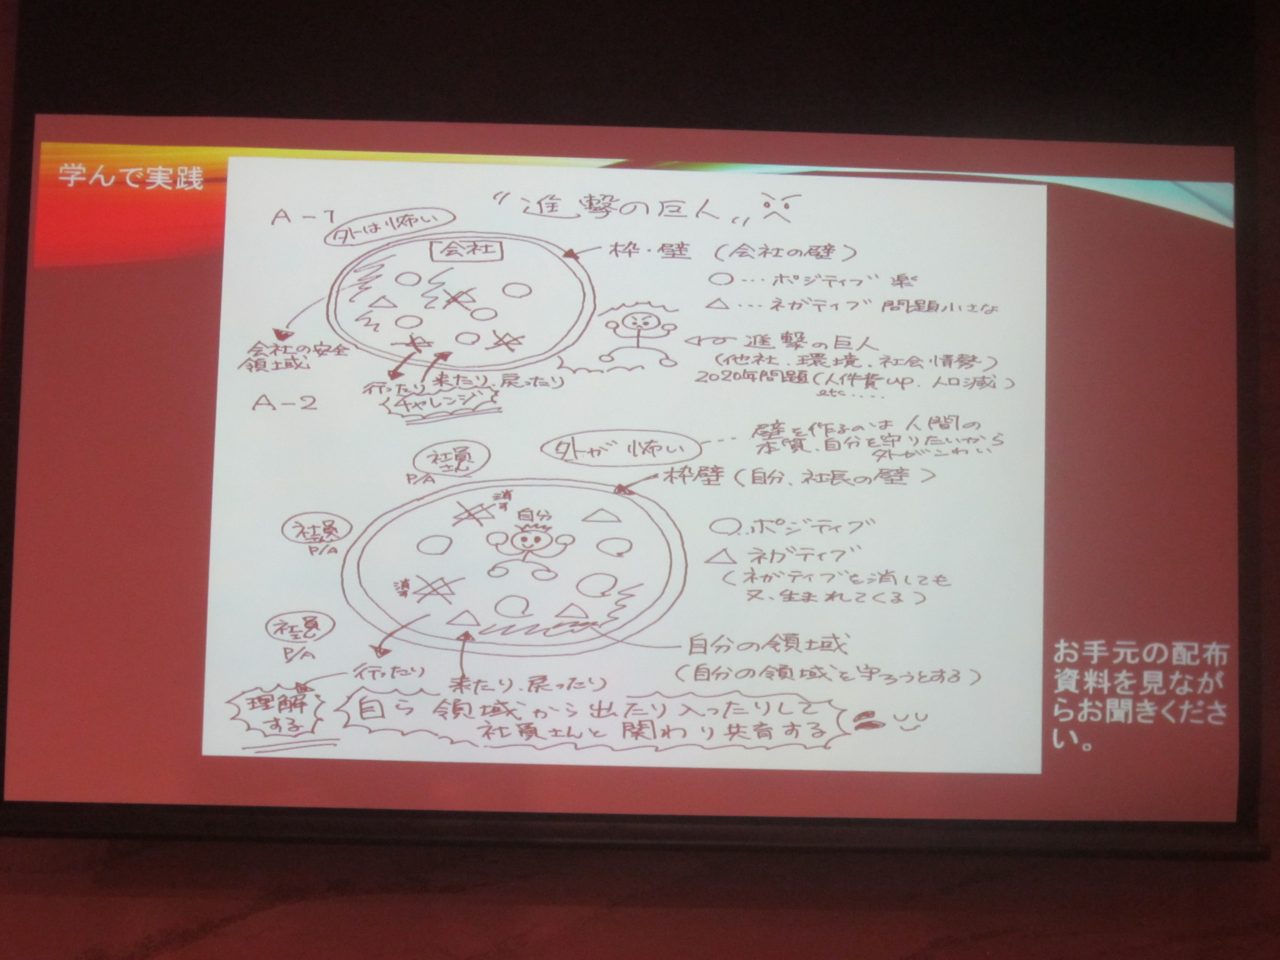 学んで実践
"進撃の巨人"
A-1
外は怖い
会社
枠・壁 (会社の壁)
○…ポジティブ 楽
△…ネガティブ 問題小さな
会社の安全
領域
進撃の巨人
(他社、環境、社会情勢)
2020年問題(人件費up、人口減)
etc.....
行ったり 来たり、戻ったり
チャレンジ
A-2
外が怖い
壁を作るのは人間の
本質、自分を守りたいから
外がこわい
社員
さん
P/A
枠壁(自分、社長の壁)
消す
自分
社員
さん
P/A
○…ポジティブ
△ ネガティブ
(ネガティブを消しても
又、生まれてくる)
消す
社員
さん
P/A
自分の領域
(自分の領域を守ろうとする)
行ったり
来たり、戻ったり
理解
する
自ら領域から出たり入ったりして
社員さんと関わり共育する
お手元の配布
資料を見なが
らお聞きくださ
い。